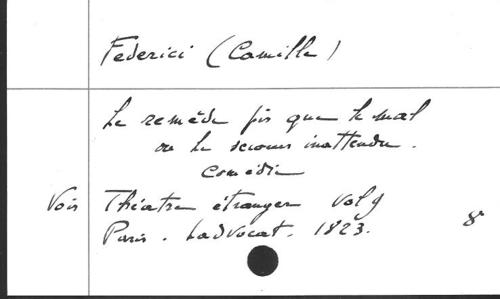 Federici (Camille)
Le remède pis que le mal
ou le secours inattendu.
Comédie
Voir Théatre étranger Vol 9
Paris. Ladvocat. 1823. 8°